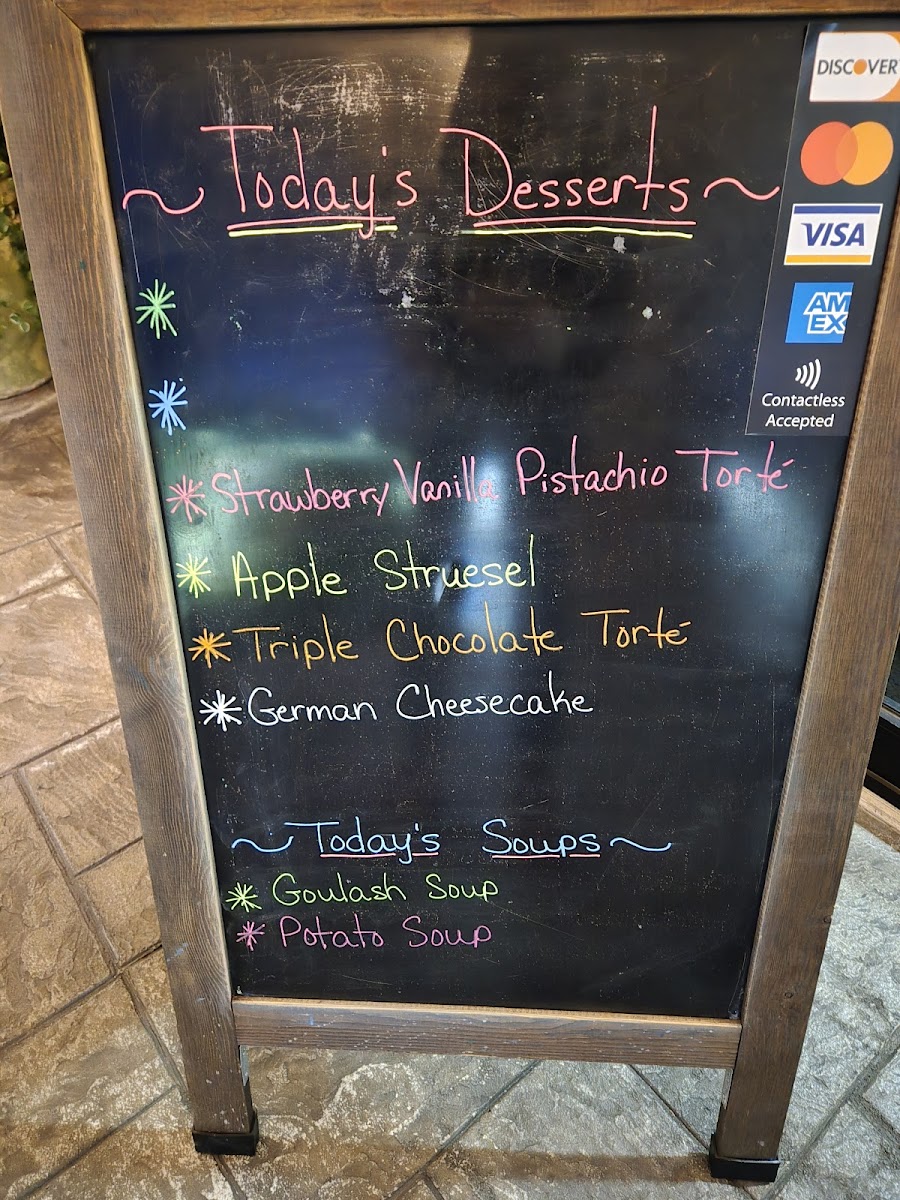 ~ Today's Desserts ~
DISCOVER
VISA
AM
EX
Contactless
Accepted
Strawberry Vanilla Pistachio Torté
Apple Struesel
Triple Chocolate Torté
German Cheesecake
~ Today's Soups ~
Goulash Soup
Potato Soup